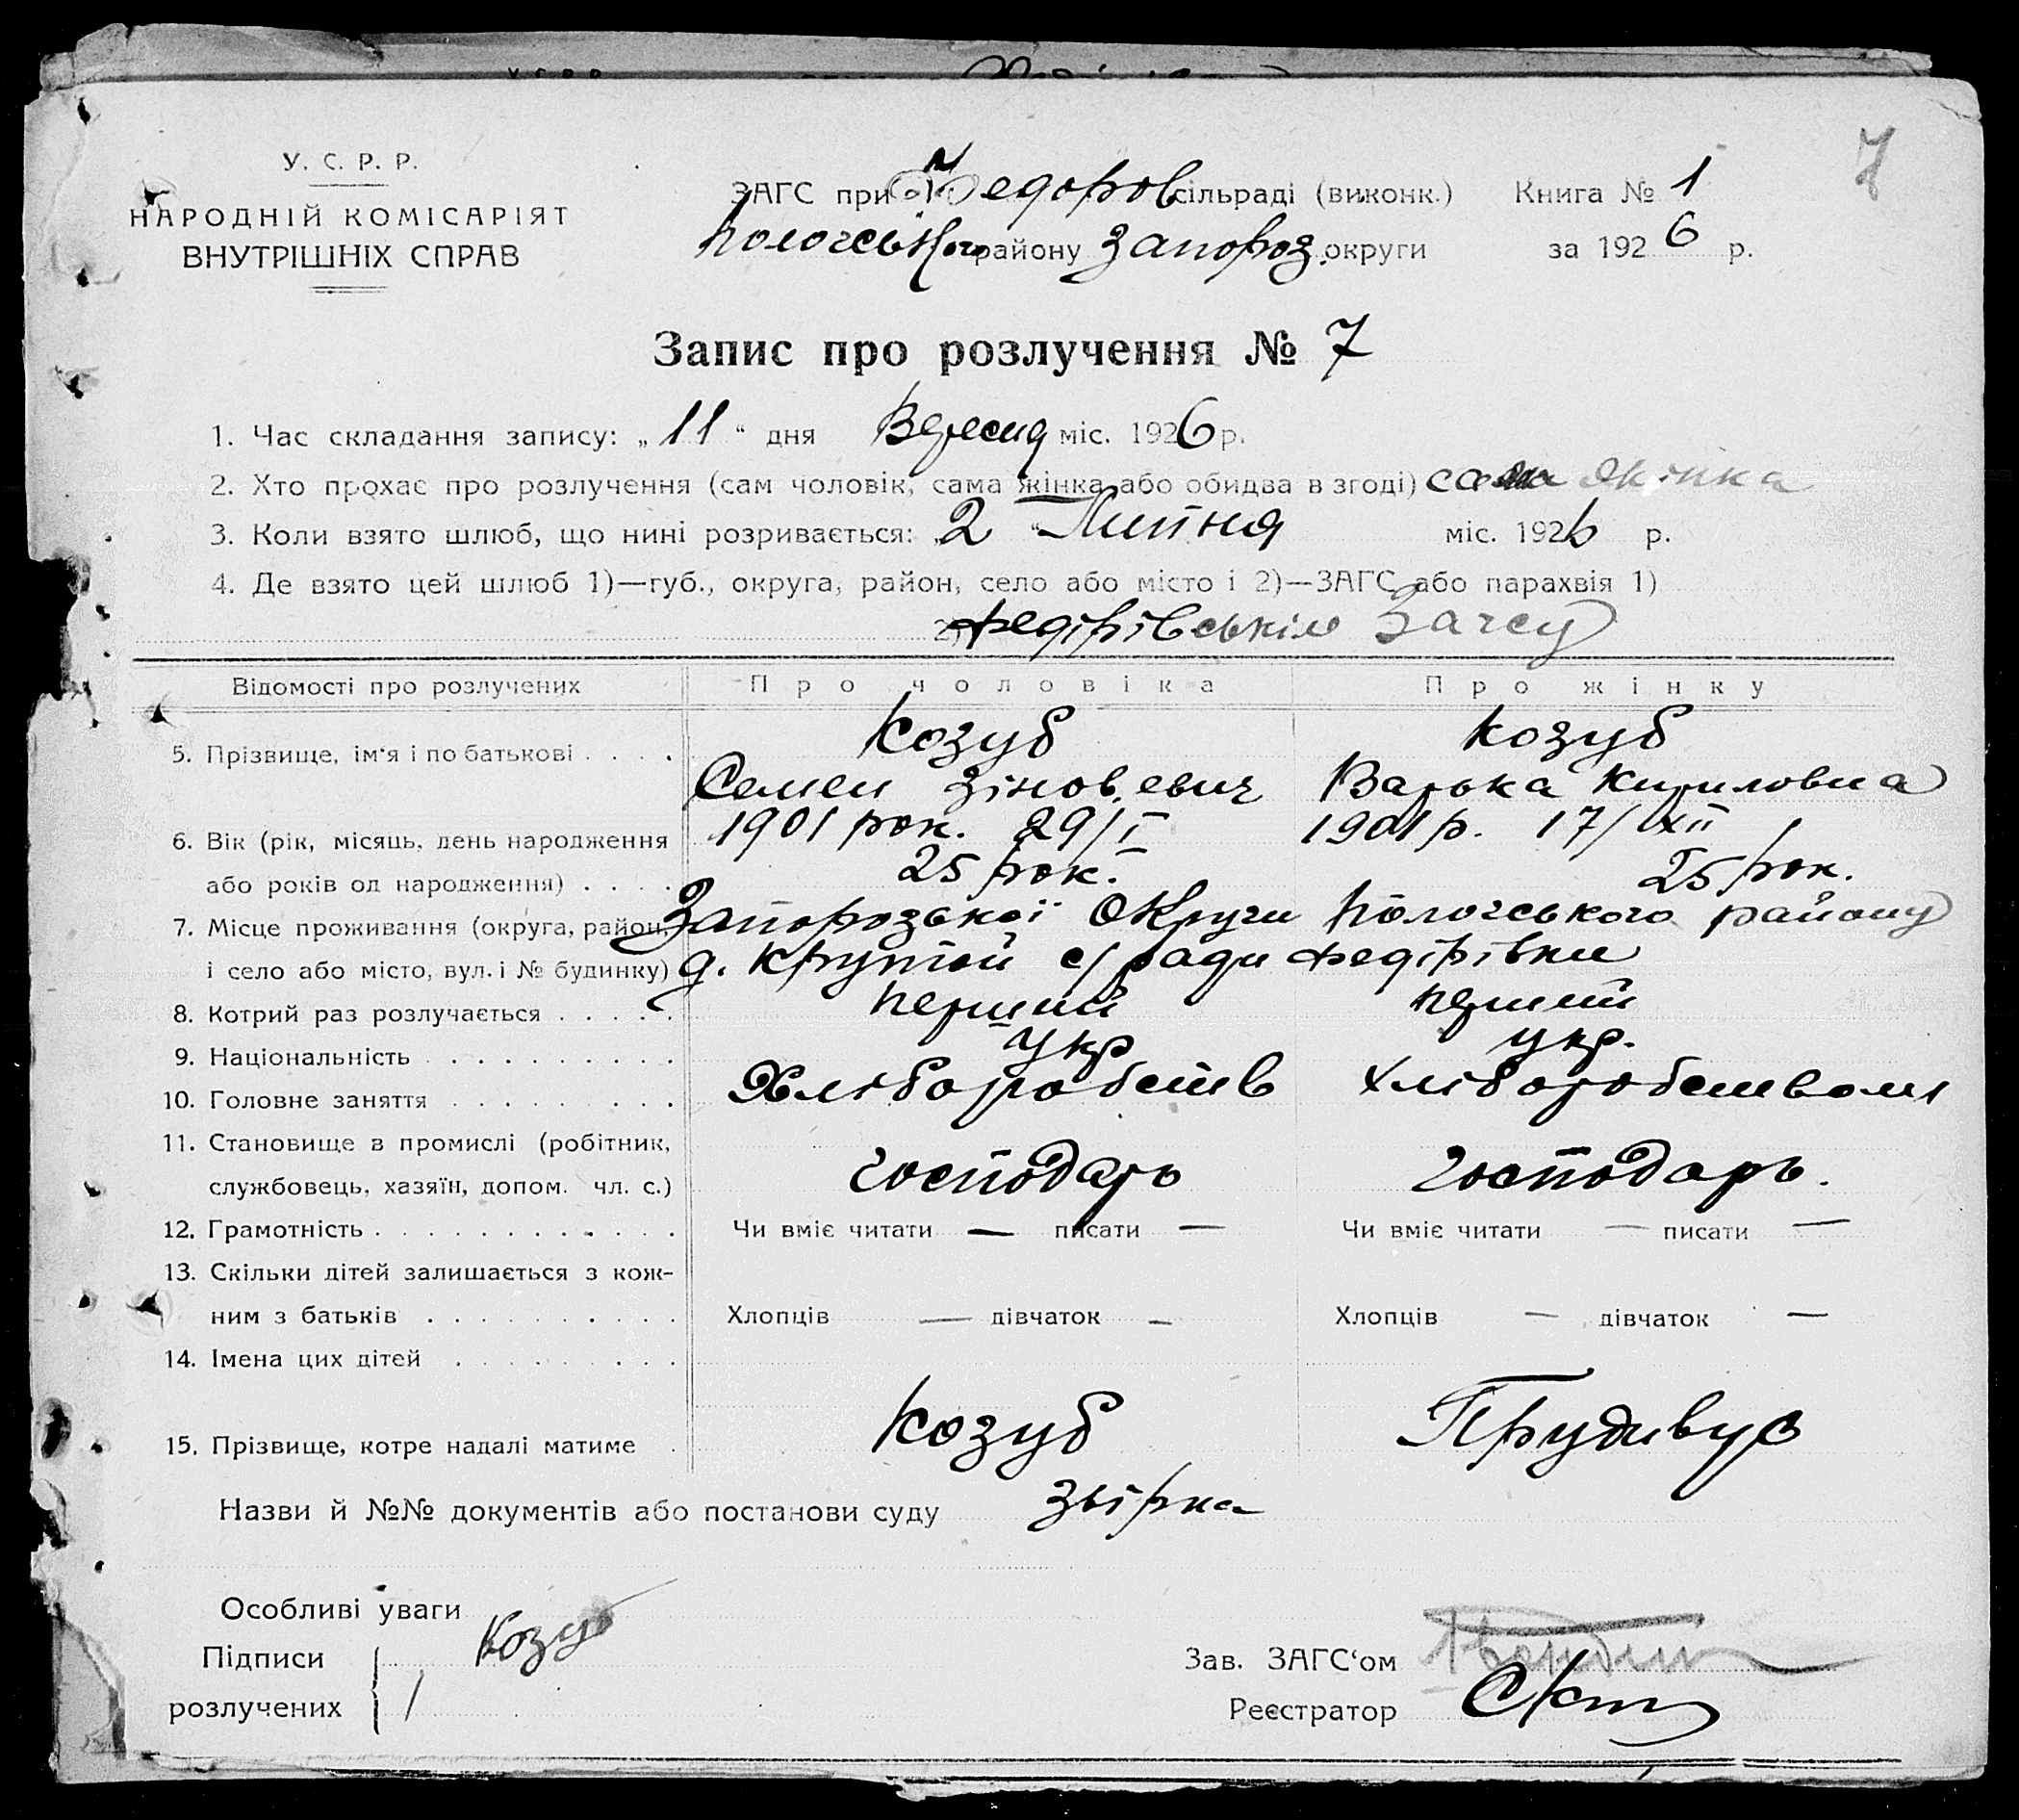 У. С. Р. Р.
НАРОДНІЙ КОМІСАРІЯТ
ВНУТРІШНІХ СПРАВ
ЗАГС при Федоров сільраді (виконк.) Книга № 1
Пологського району Запороз. округи за 1926 р.
7
Запис про розлучення № 7
1. Час складання запису: „11“ дня Вересня міс. 1926 р.
2. Хто прохає про розлучення (сам чоловік, сама жінка або обидва в згоді) сама жінка
3. Коли взято шлюб, що нині розривається: „2“ Липня міс. 1926 р.
4. Де взято цей шлюб 1)—губ., округа, район, село або місто і 2)—ЗАГС або парахвія 1)
2) Федірівськім Загсу
Відомості про розлучених Про чоловіка Про жінку
5. Прізвище, ім'я і по батькові . . . . Козуб Козуб
Семен Зінов.евич Варька Кириловна
6. Вік (рік, місяць, день народження 1901 рок. 29/I 1901 р. 17/XII
або років од народження) . . . . 25 рок. 25 рок.
7. Місце проживання (округа, район, Запорозької Округи Пологського району
і село або місто, вул. і № будинку) д. Крутой с/ради Федірівки
8. Котрий раз розлучається . . . . . Перший перший
9. Національність . . . . . . . . . . Укр укр.
10. Головне заняття . . . . . . . . . Хліборобств хліборобством
11. Становище в промислі (робітник,
службовець, хазяїн, допом. чл. с.) господарь господарь.
12. Грамотність . . . . . . . . . . . . Чи вміє читати — писати — Чи вміє читати — писати —
13. Скільки дітей залишається з кож-
ним з батьків . . . . . . . . . . Хлопців — дівчаток — Хлопців — дівчаток —
14. Імена цих дітей . . . . . . . . .
15. Прізвище, котре надалі матиме . Козуб Прудивус
Назви й №№ документів або постанови суду звірка
Особливі уваги
Підписи Козуб
розлучених
Зав. ЗАГС'ом
Реєстратор